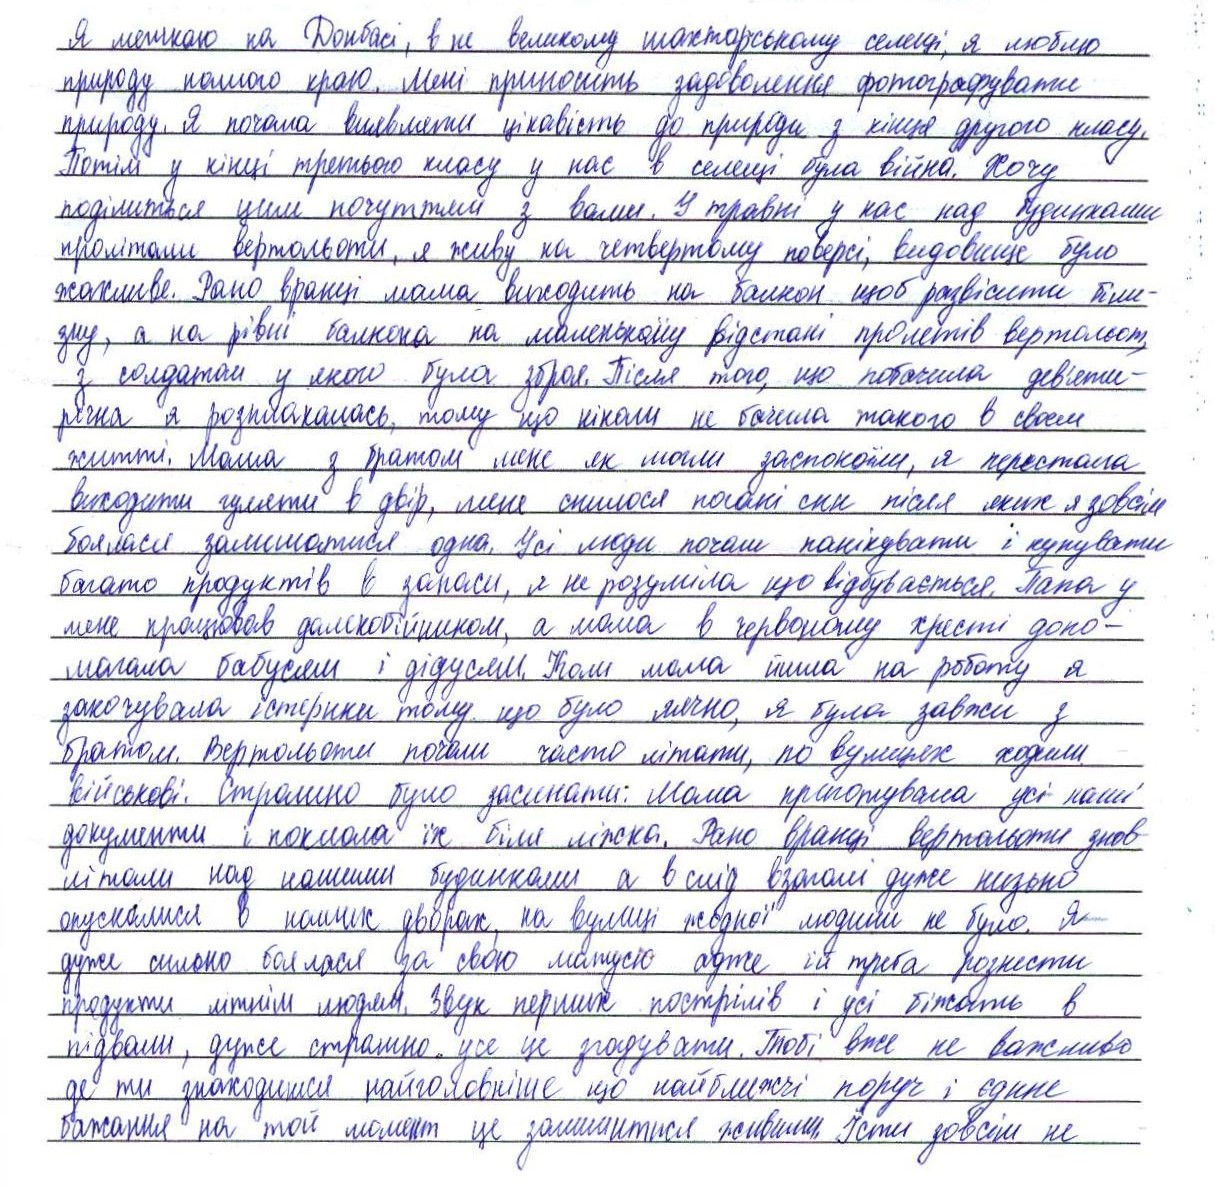 Я мешкаю на Донбасі, в не великому шахторському селещі, я люблю
природу нашого краю. Мені приносить задоволення фотографувати
природу. Я почала виявляти цікавість до природи з кінця другого класу.
Потім у кінці третього класу у нас в селещі була війна. Хочу
поділиться цим почуттям з вами. У травні у нас над будинками
пролітали вертольоти, я живу на четвертому поверсі, видовище було
жахливе. Рано вранці мама виходить на балкон щоб развісити біли-
зну, а на рівні балкона на маленькому відстані пролетів вертольот,
з солдатом у якого була зброя. Після того, що побачила дев'яти-
річна я розплакалась, тому що ніколи не бачила такого в своєм
житті. Мама з братом мене як могли заспокоїли, я перестала
виходити гуляти в двір, мене снилося погані сни після яких я зовсім
боялася залишатися одна. Усі люди почали панікувати і купувати
багато продуктів в запаси, я не розуміла що відбувається. Папа у
мене працював далекобійником, а мама в червоному хресті допо-
магала бабусям і дідусям. Коли мама йшла на роботу я
закочувала істерики тому що було лячно, я була завжи з
братом. Вертольоти почали часто літати, по вулицях ходили
військові. Страшно було засинати. Мама приготувала усі наші
документи і поклала їх біля ліжка. Рано вранці вертольоти знов
літали над нашими будинками а в слід взагалі дуже низько
опускалися в наших дворах, на вулиці жодної людини не було. Я
дуже сильно боялася за свою матусю адже їй треба рознести
продукти літнім людям. Звук перших пострілів і усі біжать в
підвали, дуже страшно усе це згадувати. Тобі вже не важливо
де ти знаходишся найголовніше що найближчі поруч і єдине
бажання на той момент це залишитися живими. Їсти зовсім не